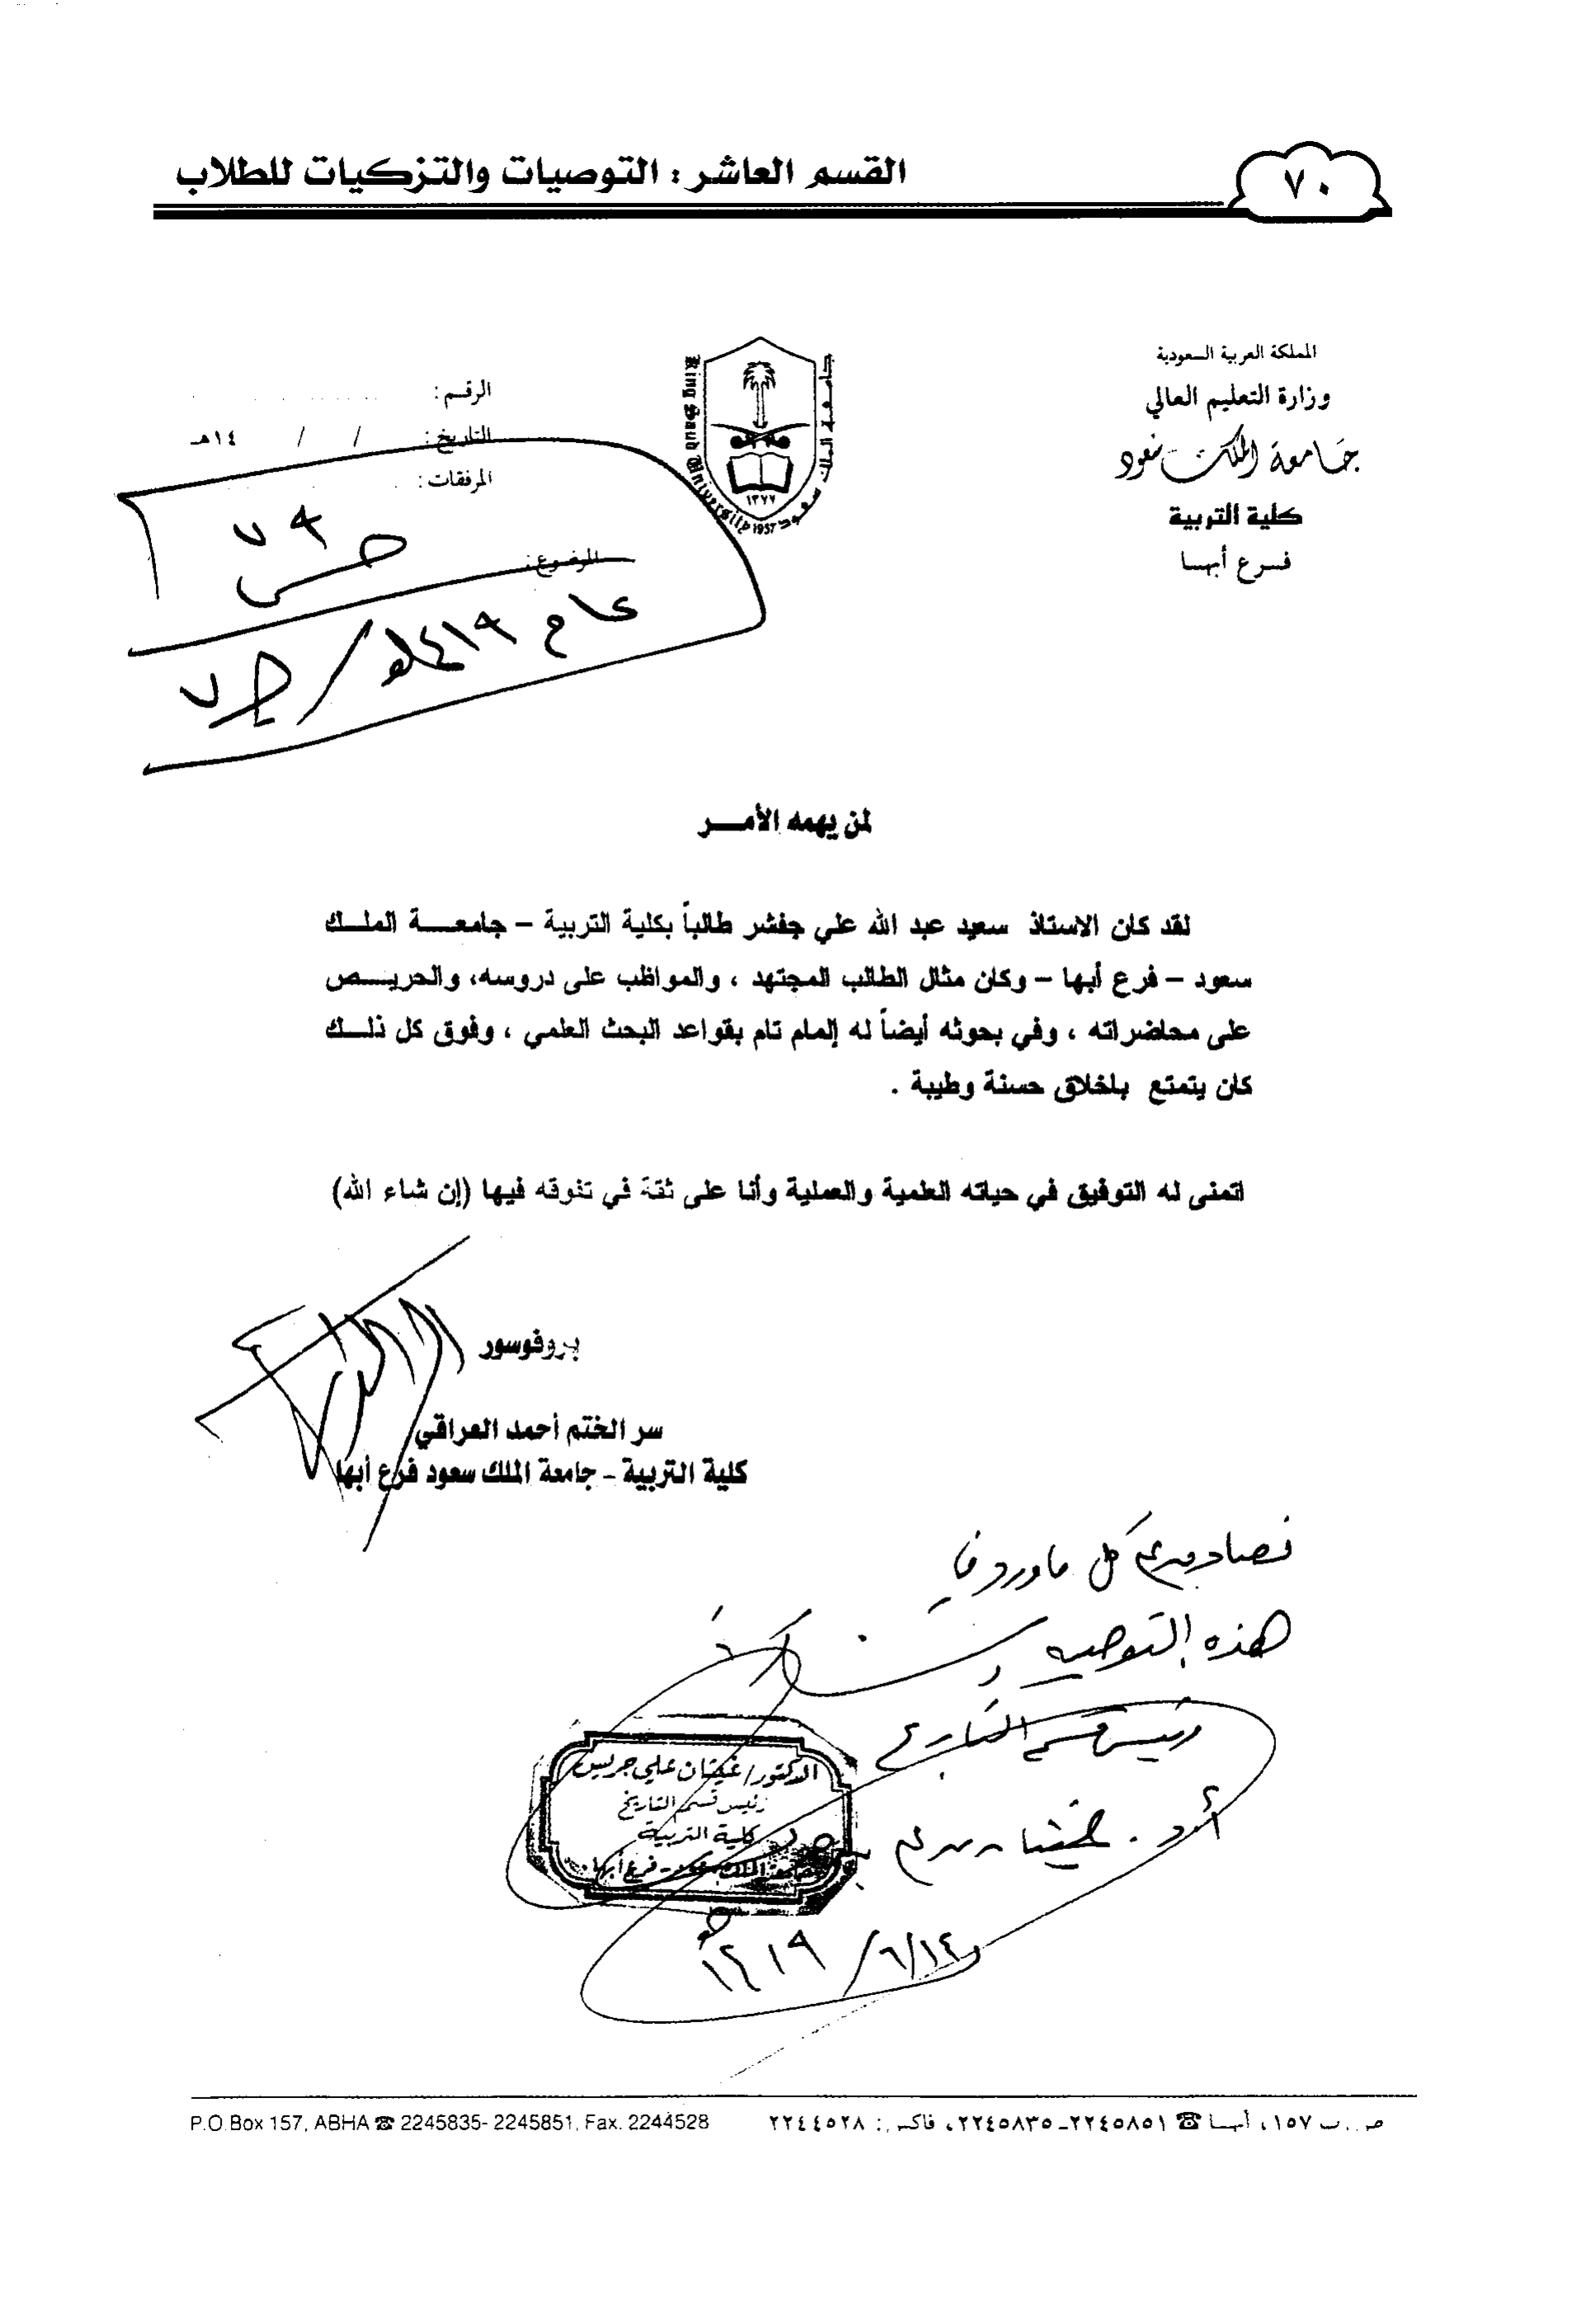 ٧٠
القسم العاشر : التوصيات والتزكيات للطلاب
المملكة العربية السعودية
وزارة التعليم العالي
جامعة الملك سعود
كلية التربية
فرع أبها
جامعة الملك سعود
King Saud University 1957
١٣٧٧
الرقم :
التاريخ : / / ١٤هـ
المرفقات :
الموضوع :
عام ١٤١٩هـ /
لمن يهمه الأمـــر
لقد كان الاستاذ سعيد عبد الله علي جفشر طالباً بكلية التربية – جامعـــة الملـك
سعود – فرع أبها – وكان مثال الطالب المجتهد ، والمواظب على دروسه، والحريــص
على محاضراته ، وفي بحوثه أيضاً له إلمام تام بقواعد البحث العلمي ، وفوق كل ذلـــك
كان يتمتع باخلاق حسنة وطيبة .
اتمنى له التوفيق في حياته العلمية والعملية وأنا على ثقة في تفوقه فيها (إن شاء الله)
بروفوسور
سر الختم أحمد العراقي
كلية التربية – جامعة الملك سعود فرع أبها
نصادق على كل ما ورد في
هذه التوصيه
رئيس قسم التاريخ
أ.د. غيثان بن علي بن جريس
١٤/٦/١٤١٩هـ
الدكتور/ غيثان علي جريس
رئيس قسم التاريخ
كلية التربية
جامعة الملك سعود - فرع أبها
ص . ب ١٥٧ ، أبهـا ☎ ٢٢٤٥٨٥١ــ٢٢٤٥٨٣٥ ، فاكس : ٢٢٤٤٥٢٨
P.O.Box 157, ABHA ☎ 2245835- 2245851, Fax. 2244528